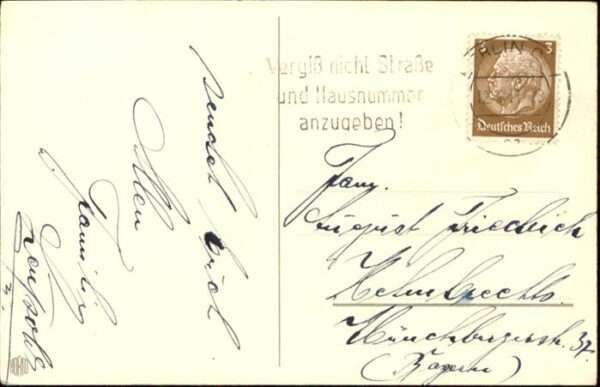 sendet Euch
Allen
Familie
BERLIN C
Vergiß nicht Straße
und Hausnummer
anzugeben!
3 3
Deutsches Reich
Fam.
August Friedrich
Helmbrechts.
Münchbergerstr. 37.
(Bayern)